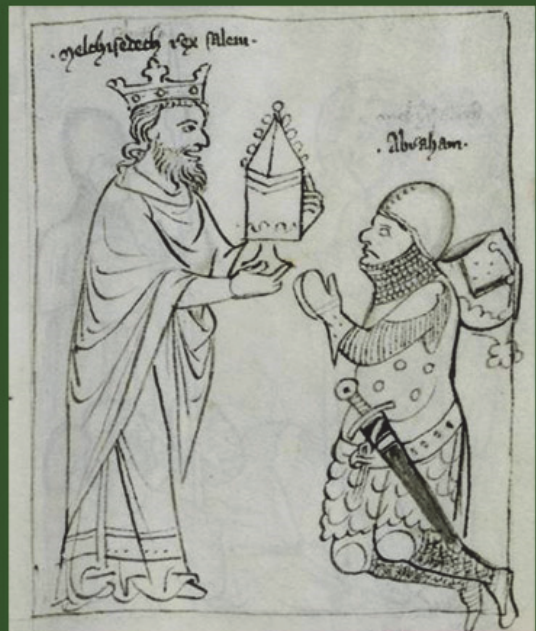 ·melchisedech rex salem·
·Abraham·